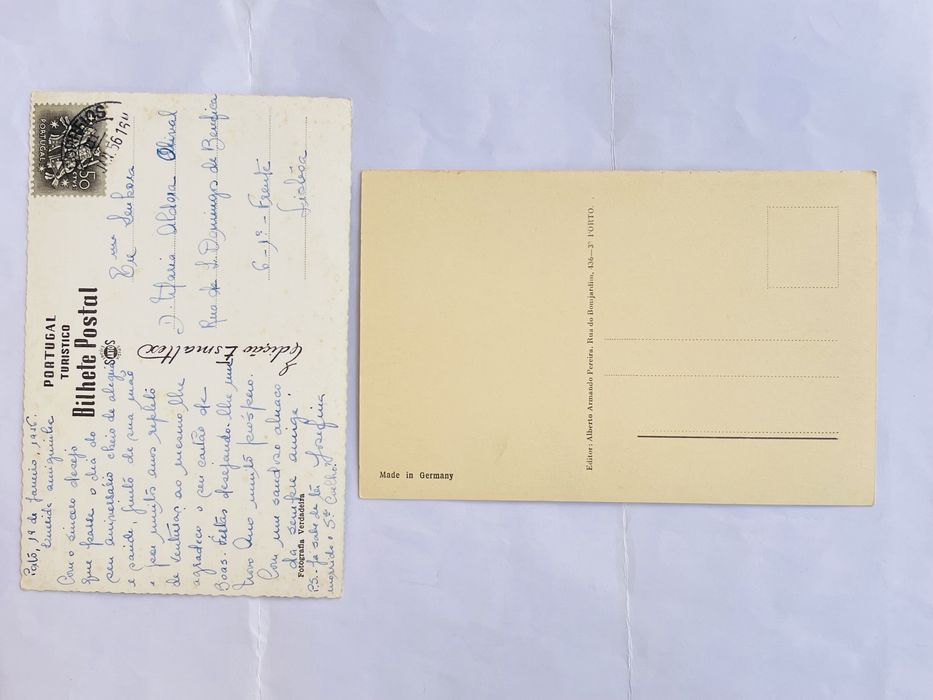 PORTUGAL
TURISTICO
Bilhete Postal
Edição Esmaltex
Fotografia Verdadeira
CORREIOS
PORTUGAL
50
Porto, 19 de Janeiro, 1956.
amiguinha
Com o sincero desejo
que passe o dia do
seu aniversário cheio de alegria
e saúde, junto de sua mãe
e por muitos anos repleto
de venturas ao mesmo lhe
agradeço o seu cartão de
Boas-Festas desejando-lhe um
Novo Ano muito próspero.
Com um saudoso abraço
da sempre amiga
Josefina
P.S. Já sabe de ter
morrido o Sr. Coelho?
Exma Senhora
D. Maria Aldora Olival
Rua de S. Domingos de Benfica
6-1º-Frente
Lisbôa
Editor: Alberto Armando Pereira. Rua do Bomjardim, 436—3º PORTO.
Made in Germany